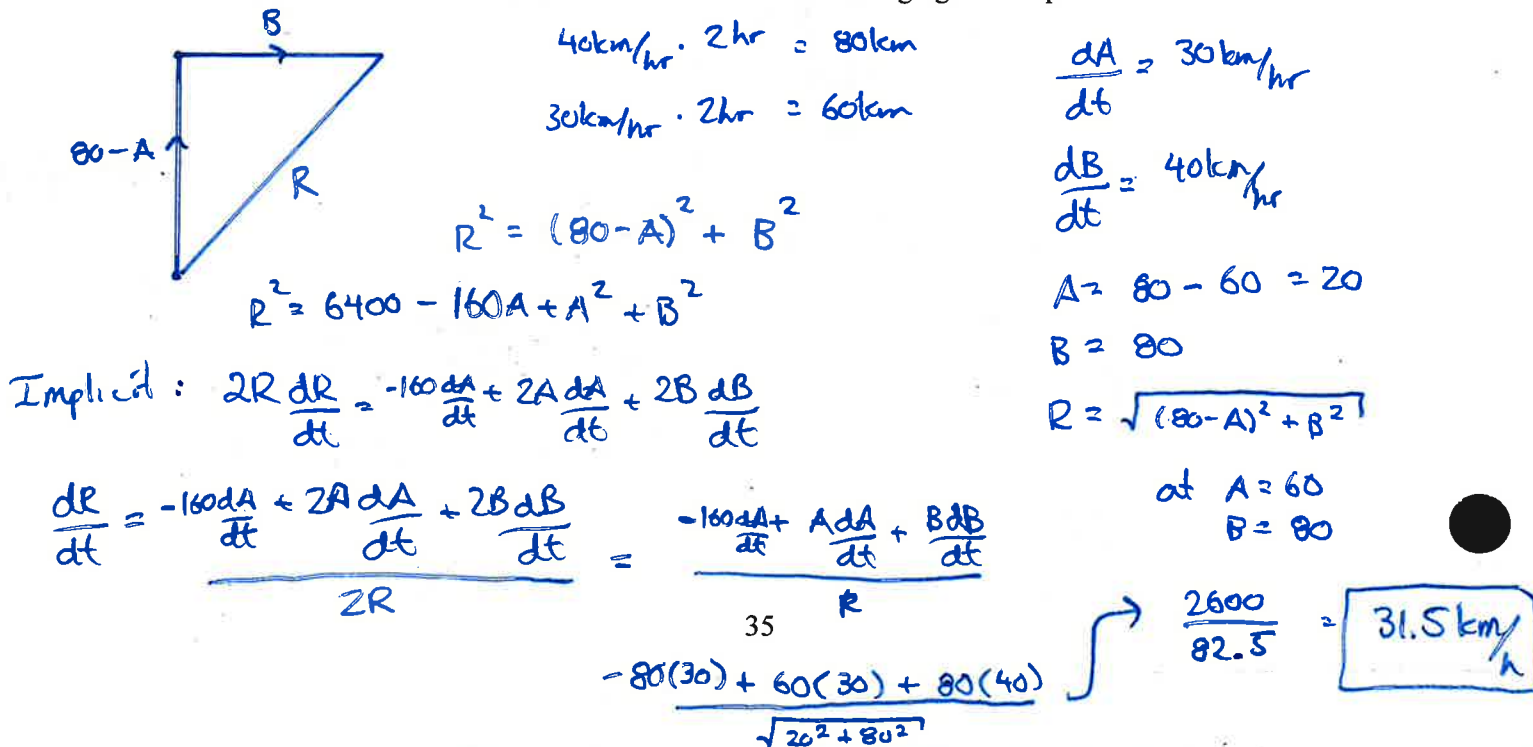 B
80-A
R
40km/hr · 2hr = 80km
30km/hr · 2hr = 60km
R² = (80-A)² + B²
R² = 6400 - 160A + A² + B²
Implicit : 2R dR/dt = -160 dA/dt + 2A dA/dt + 2B dB/dt
dR/dt = (-160 dA/dt + 2A dA/dt + 2B dB/dt) / 2R = (-160 dA/dt + A dA/dt + B dB/dt) / R
dA/dt = 30km/hr
dB/dt = 40km/hr
A = 80 - 60 = 20
B = 80
R = √((80-A)² + B²)
at A = 60
B = 80
35
(-80(30) + 60(30) + 80(40)) / √(20² + 80²)
→ 2600/82.5 = 31.5 km/h